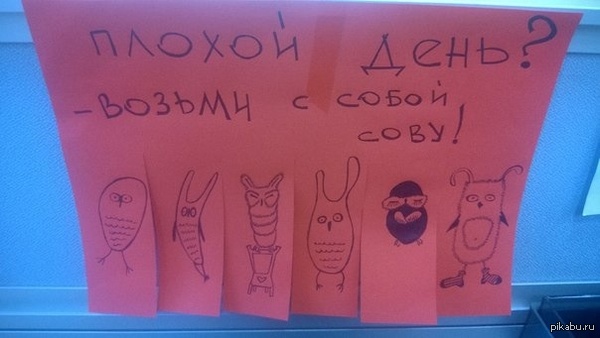 ПЛОХОЙ ДЕНЬ?
- ВОЗЬМИ С СОБОЙ
СОВУ!
pikabu.ru